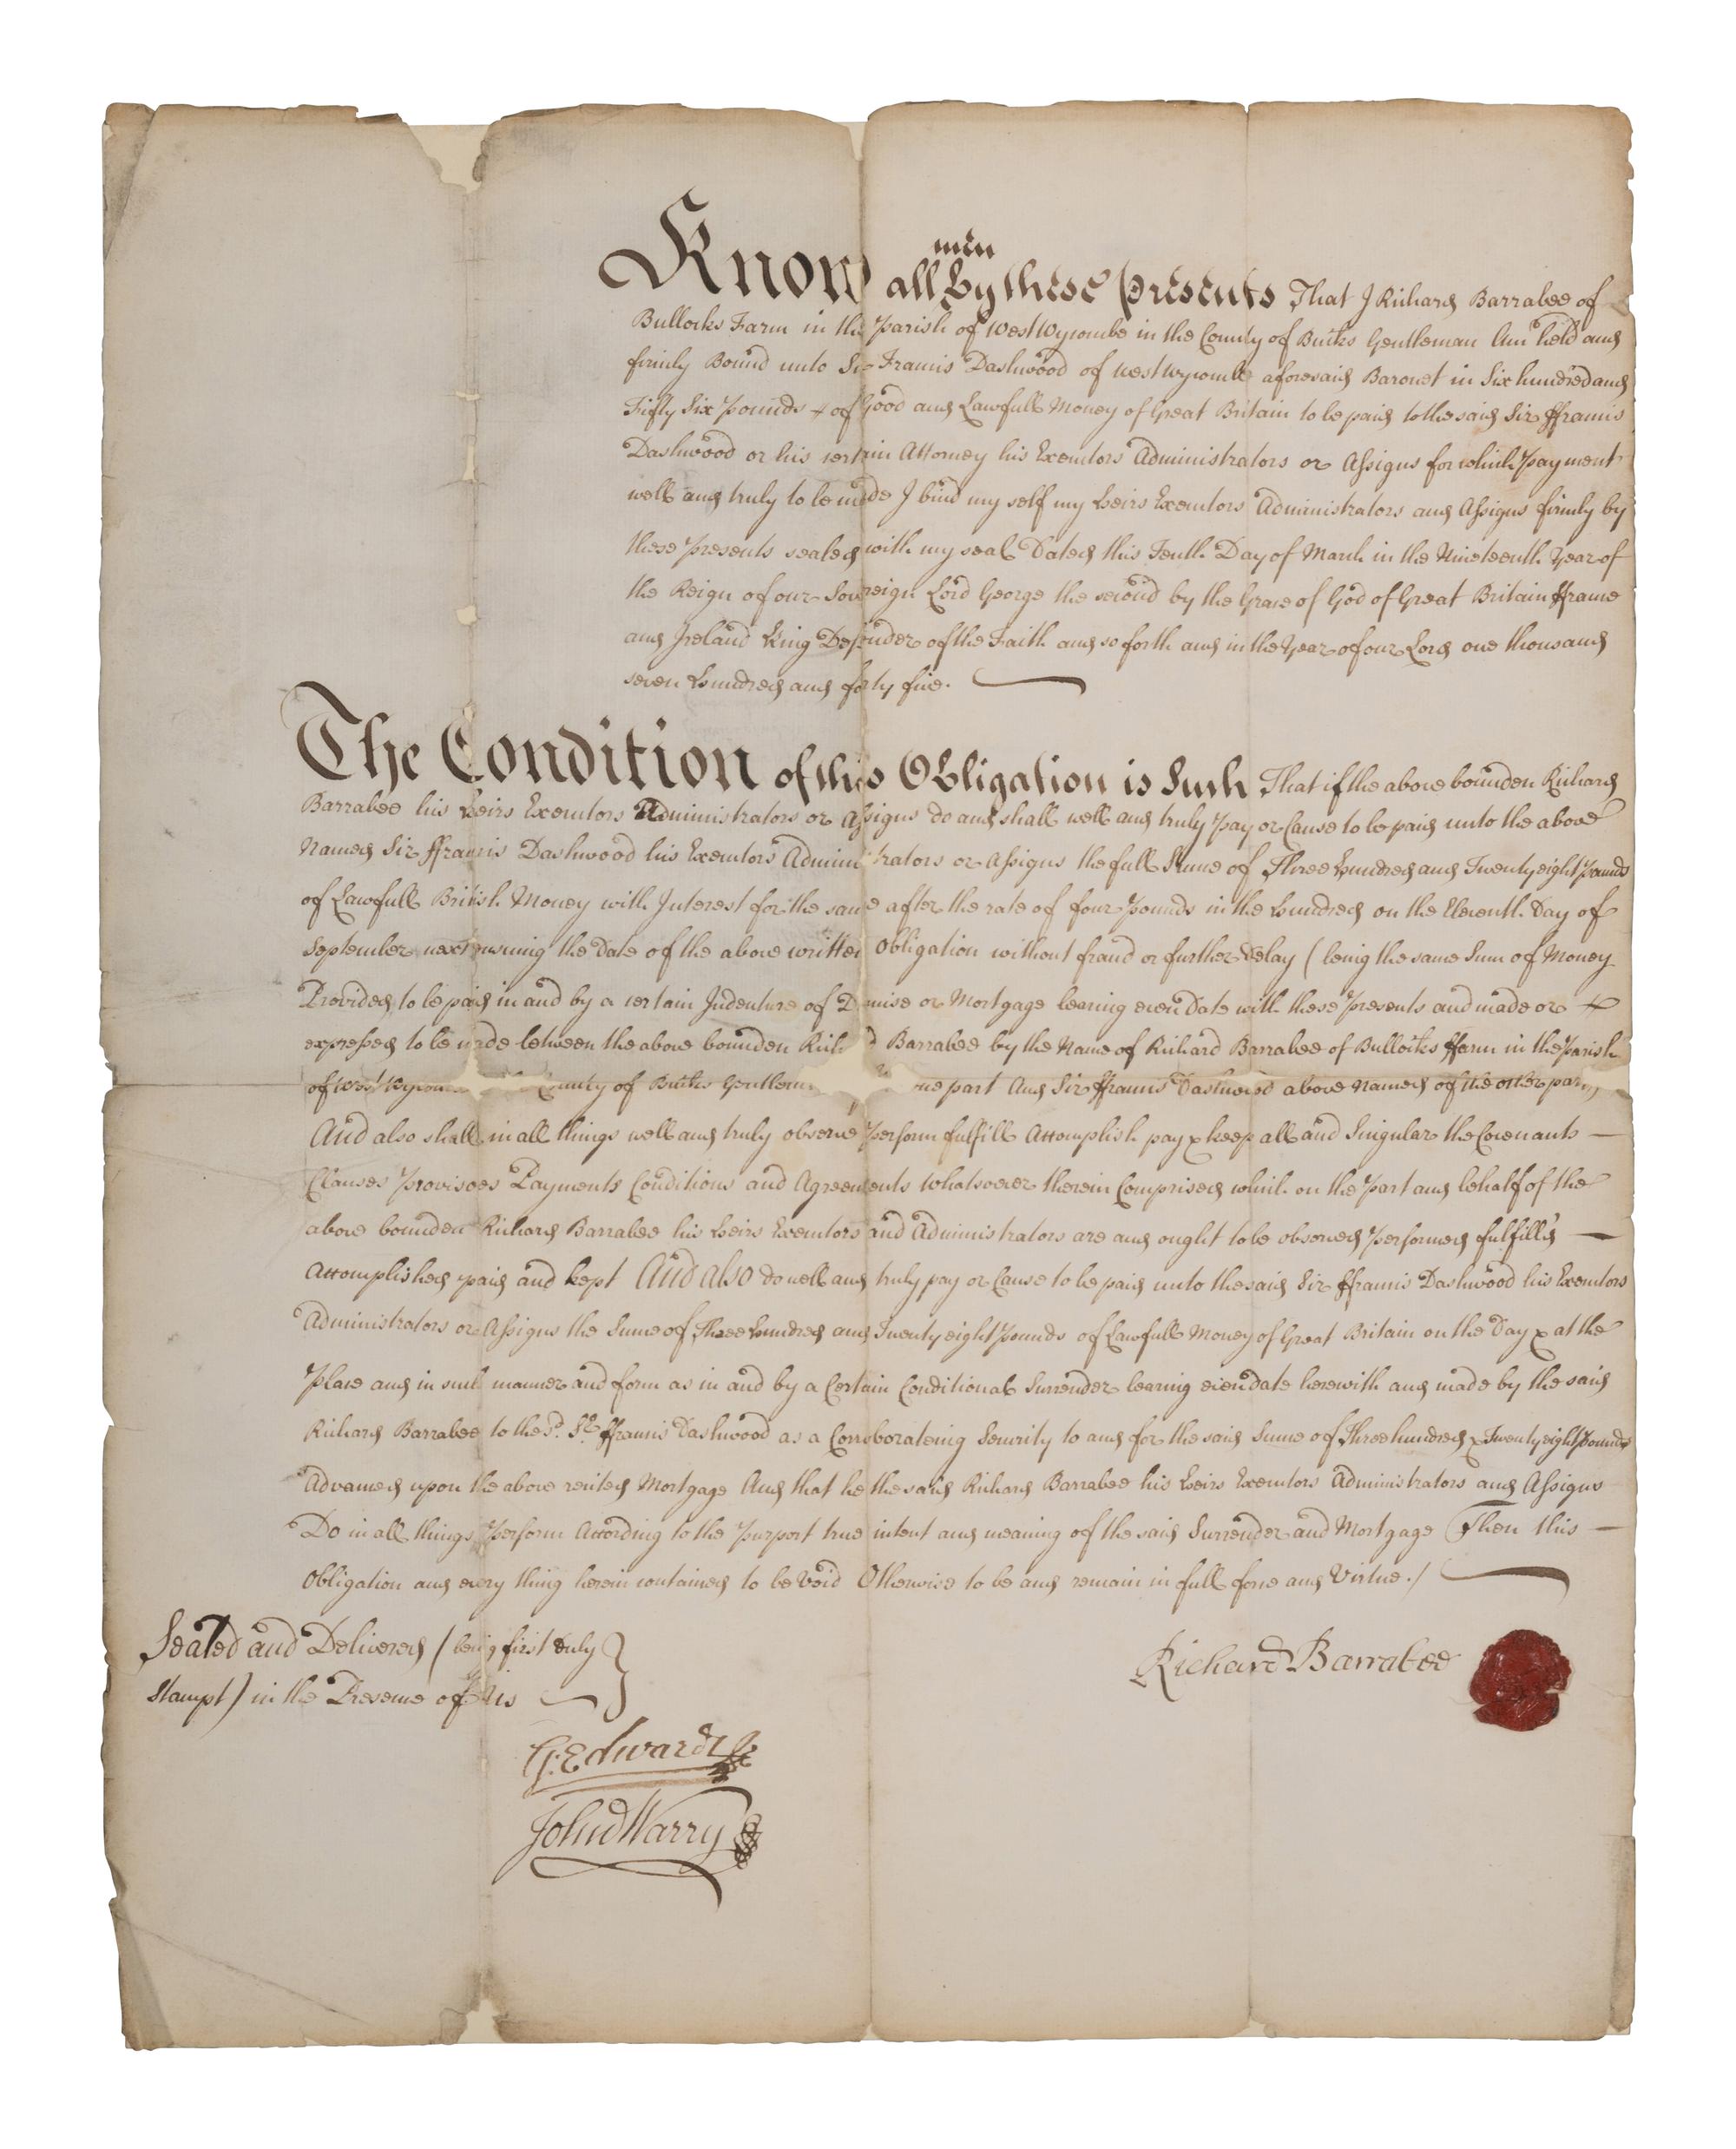 men
Know all By these Presents That I Richard Barrabee of
Bullocks Farm in the Parish of West Wycombe in the County of Bucks Gentleman Am held and
firmly Bound unto Sir Francis Dashwood of West Wycombe aforesaid Baronet in Six hundred and
Fifty Six Pounds of Good and Lawfull Money of Great Britain to be paid to the said Sir ffrancis
Dashwood or his certain Attorney his Executors Administrators or Assigns for which Payment
well and truly to be made I bind my self my Heirs Executors Administrators and Assigns firmly by
these Presents sealed with my seal Dated this Tenth Day of March in the Nineteenth Year of
the Reign of our Sovereign Lord George the second by the Grace of God of Great Britain ffrance
and Ireland King Defender of the Faith and so forth and in the Year of our Lord one thousand
seven Hundred and forty five.
The Condition of this Obligation is Such That if the above bounden Richard
Barrabee his Heirs Executors Administrators or Assigns do and shall well and truly Pay or Cause to be paid unto the above
Named Sir ffrancis Dashwood his Executors Administrators or Assigns the full Sume of Three Hundred and Twenty eight Pounds
of Lawfull British Money with Interest for the same after the rate of four Pounds in the Hundred on the Eleventh Day of
September next ensuing the Date of the above written Obligation without fraud or further Delay (being the same Sum of Money
Provided to be paid in and by a certain Indenture of Demise or Mortgage bearing even Date with these Presents and made or
expressed to be made between the above bounden Richd Barrabee by the Name of Richard Barrabee of Bullocks ffarm in the Parish
of West Wycombe County of Bucks Gentleman one part And Sir ffrancis Dashwood above Named of the other part)
And also shall in all things well and truly observe Perform fulfill Accomplish pay & keep all and Singular the Covenants
Clauses Provisoes Payments Conditions and Agreements whatsoever therein Comprised which on the Part and behalf of the
above bounden Richard Barrabee his Heirs Executors and Administrators are and ought to be observed Performed fulfill'd
Accomplished paid and kept And also do well and truly pay or Cause to be paid unto the said Sir ffrancis Dashwood his Executors
Administrators or Assigns the Sume of Three Hundred and Twenty eight Pounds of Lawfull Money of Great Britain on the Day & at the
Place and in such manner and form as in and by a Certain Conditional Surrender bearing even date herewith and made by the said
Richard Barrabee to the sd. Sr. ffrancis Dashwood as a Corroborateing Security to and for the said Sume of Three hundred & Twenty eight Pounds
Advanced upon the above recited Mortgage And that he the said Richard Barrabee his Heirs Executors Administrators and Assigns
Do in all things Perform According to the Purport true intent and meaning of the said Surrender and Mortgage Then this
Obligation and every thing herein contained to be Void Otherwise to be and remain in full force and Virtue./
Sealed and Delivered (being first duly
Stampt) in the Presence of Us
Richard Barrabee
G: Edwards
John Warry